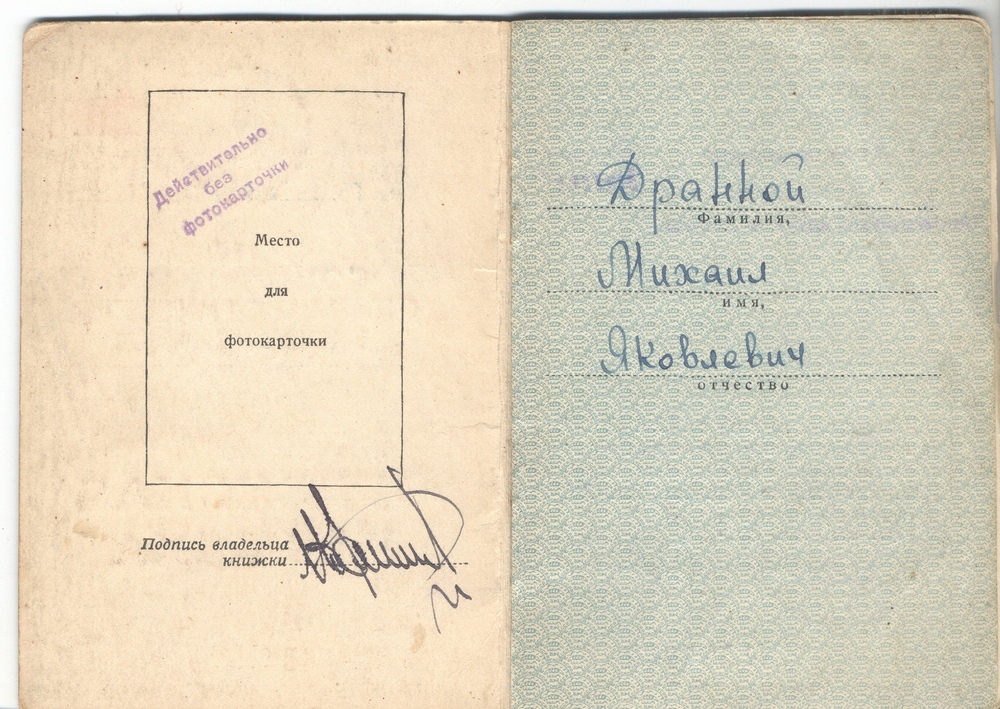 Действительно
без
фотокарточки
Место
для
фотокарточки
Подпись владельца
книжки
Дранной
Фамилия,
Михаил
имя,
Яковлевич
отчество